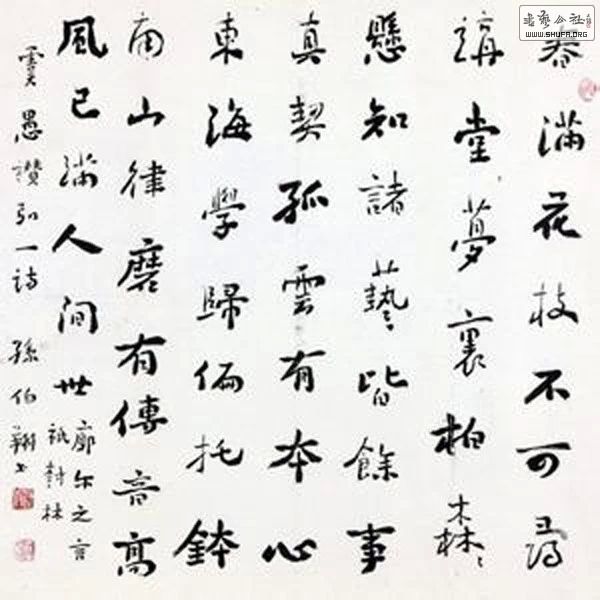 春滿花枝不可尋
講堂夢裏柏森森
懸知諸藝皆餘事
真契孤雲有本心
東海學歸偏托鉢
南山律磨有傳音高
風已滿人間世
廓尔之言
祇樹林
虞愚讚弘一诗 孫伯翔书
书艺公社
WWW.SHUFA.ORG